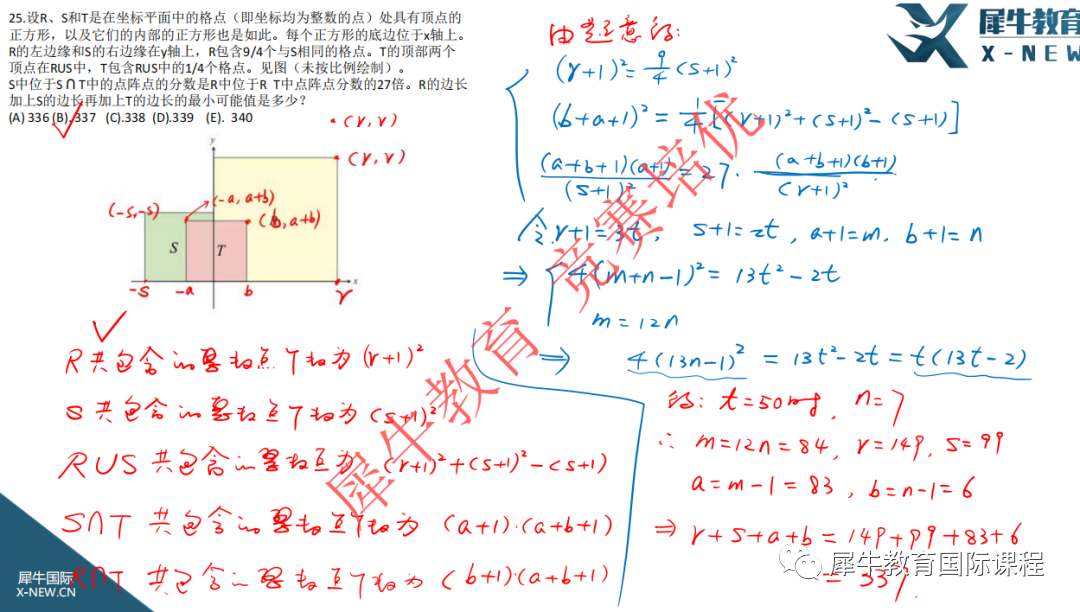 25.设R、S和T是在坐标平面中的格点（即坐标均为整数的点）处具有顶点的
正方形，以及它们的内部的正方形也是如此。每个正方形的底边位于x轴上。
R的左边缘和S的右边缘在y轴上，R包含9/4个与S相同的格点。T的顶部两个
顶点在RUS中，T包含RUS中的1/4个格点。见图（未按比例绘制）。
S中位于S∩T中的点阵点的分数是R中位于R T中点阵点分数的27倍。R的边长
加上S的边长再加上T的边长的最小可能值是多少？
(A) 336 (B). 337 (C).338 (D).339 (E). 340
(r, r)
y
(r, r)
(-a, a+b)
(-s,-s)
(b, a+b)
S
T
-s
-a
b
r
x
R共包含的整数点个数为(r+1)²
S共包含的整数点个数为(s+1)²
RUS共包含的整数点为(r+1)²+(s+1)²-(s+1)
S∩T共包含的整数点个数为(a+1)·(a+b+1)
R∩T共包含的整数点个数为(b+1)·(a+b+1)
由题意得:
(r+1)²=9/4(s+1)²
(b+a+1)²=1/4[(r+1)²+(s+1)²-(s+1)]
(a+b+1)(a+1)/(s+1)²=27·(a+b+1)(b+1)/(r+1)²
令r+1=3t, s+1=2t, a+1=m, b+1=n
⇒ 4(m+n-1)²=13t²-2t
m=12n
⇒ 4(13n-1)²=13t²-2t=t(13t-2)
得: t=50时, n=7
∴ m=12n=84, r=149, s=99
a=m-1=83, b=n-1=6
⇒ r+s+a+b=149+99+83+6
=337.
犀牛教育
X-NEW
犀牛教育 竞赛培优
犀牛国际
X-NEW.CN
犀牛教育国际课程